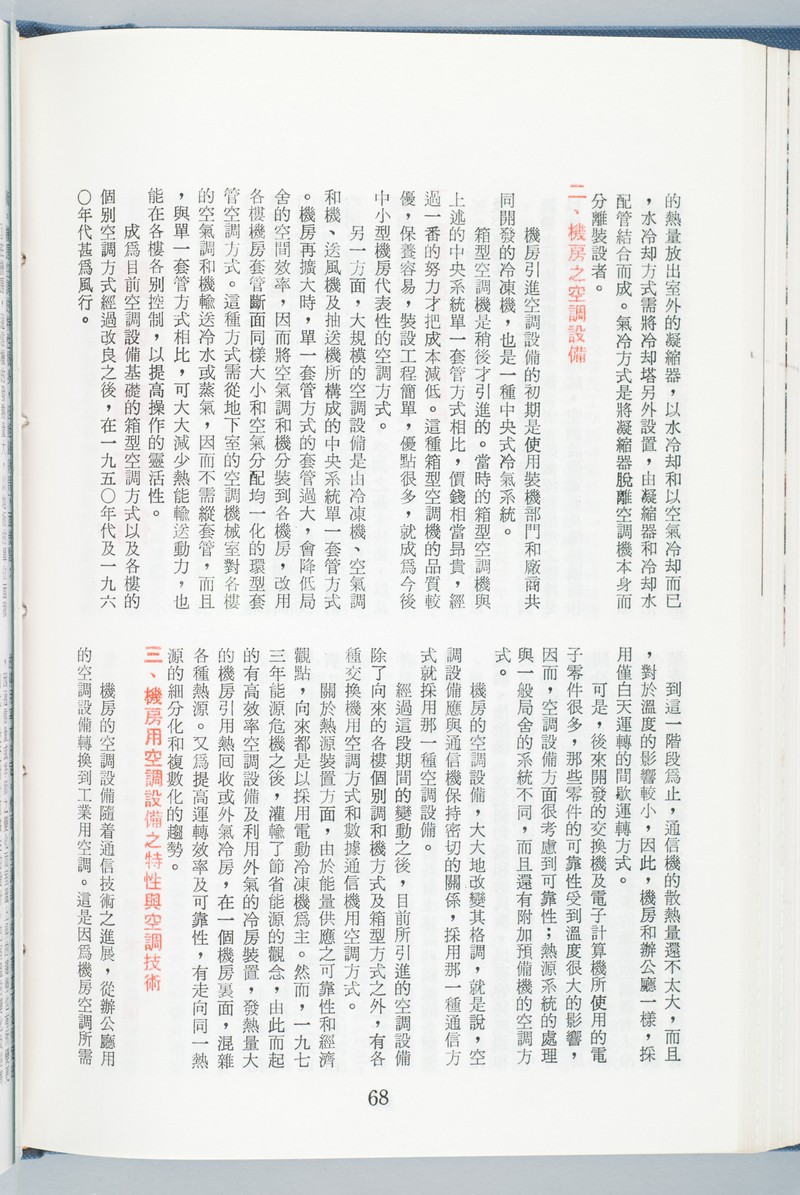 的熱量放出室外的凝縮器，以水冷却和以空氣冷却而已
，水冷却方式需將冷却塔另外設置，由凝縮器和冷却水
配管結合而成。氣冷方式是將凝縮器脫離空調機本身而
分離裝設者。
二、機房之空調設備
機房引進空調設備的初期是使用裝機部門和廠商共
同開發的冷凍機，也是一種中央式冷氣系統。
箱型空調機是稍後才引進的。當時的箱型空調機與
上述的中央系統單一套管方式相比，價錢相當昂貴，經
過一番的努力才把成本減低。這種箱型空調機的品質較
優，保養容易，裝設工程簡單，優點很多，就成爲今後
中小型機房代表性的空調方式。
另一方面，大規模的空調設備是由冷凍機、空氣調
和機、送風機及抽送機所構成的中央系統單一套管方式
。機房再擴大時，單一套管方式的套管過大，會降低局
舍的空間效率，因而將空氣調和機分裝到各機房，改用
各樓機房套管斷面同樣大小和空氣分配均一化的環型套
管空調方式。這種方式需從地下室的空調機械室對各樓
的空氣調和機輸送冷水或蒸氣，因而不需縱套管，而且
，與單一套管方式相比，可大大減少熱能輸送動力，也
能在各樓各別控制，以提高操作的靈活性。
成爲目前空調設備基礎的箱型空調方式以及各樓的
個別空調方式經過改良之後，在一九五〇年代及一九六
〇年代甚爲風行。
到這一階段爲止，通信機的散熱量還不太大，而且
，對於溫度的影響較小，因此，機房和辦公廳一樣，採
用僅白天運轉的間歇運轉方式。
可是，後來開發的交換機及電子計算機所使用的電
子零件很多，那些零件的可靠性受到溫度很大的影響，
因而，空調設備方面很考慮到可靠性；熱源系統的處理
與一般局舍的系統不同，而且還有附加預備機的空調方
式。
機房的空調設備，大大地改變其格調，就是說，空
調設備應與通信機保持密切的關係，採用那一種通信方
式就採用那一種空調設備。
經過這段期間的變動之後，目前所引進的空調設備
除了向來的各樓個別調和機方式及箱型方式之外，有各
種交換機用空調方式和數據通信機用空調方式。
關於熱源裝置方面，由於能量供應之可靠性和經濟
觀點，向來都是以採用電動冷凍機爲主。然而，一九七
三年能源危機之後，灌輸了節省能源的觀念，由此而起
的有高效率空調設備及利用外氣的冷房裝置，發熱量大
的機房引用熱回收或外氣冷房，在一個機房裏面，混雜
各種熱源。又爲提高運轉效率及可靠性，有走向同一熱
源的細分化和複數化的趨勢。
三、機房用空調設備之特性與空調技術
機房的空調設備隨着通信技術之進展，從辦公廳用
的空調設備轉換到工業用空調。這是因爲機房空調所需
68